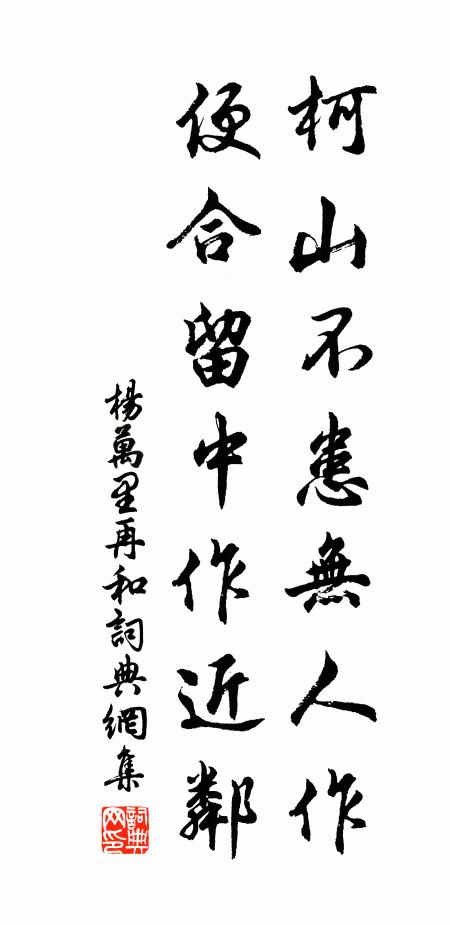 柯山不患無人作
便合留中作近鄰
楊萬里再和詞典網集
詞典网印